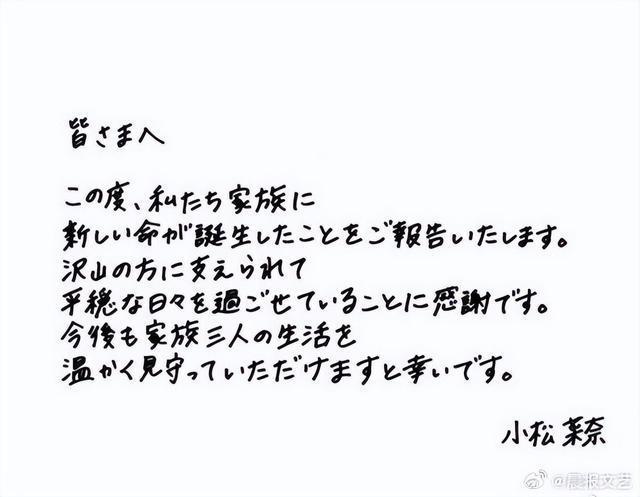 皆さまへ
この度、私たち家族に
新しい命が誕生したことをご報告いたします。
沢山の方に支えられて
平穏な日々を過ごせていることに感謝です。
今後も家族三人の生活を
温かく見守っていただけますと幸いです。
小松菜奈
@晨报文艺